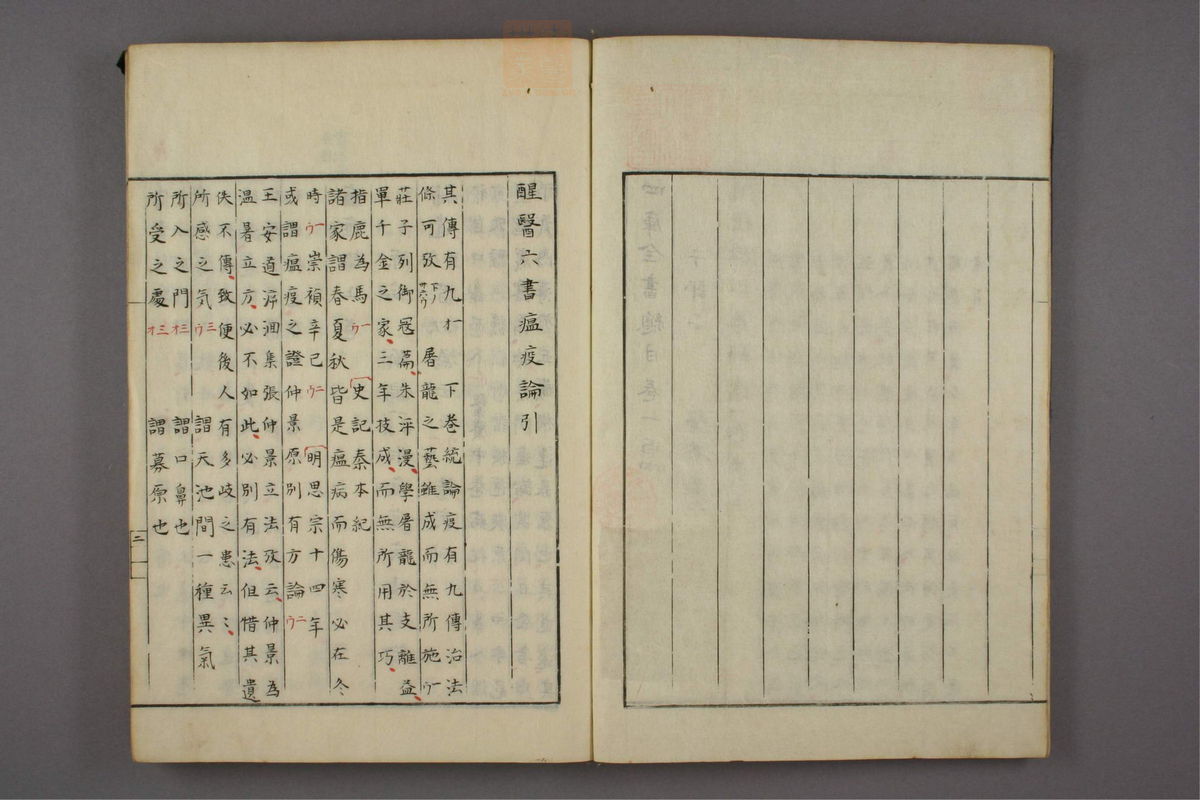 醒醫六書瘟疫論引
其傳有九 一オ 下巻統論疫有九傳治法
條可攷 下ノ廿六ウ 屠龍之藝雖成而無所施 一ウ
莊子列御冦篇朱泙漫學屠龍於支離益
單千金之家三年技成而無所用其巧
指鹿為馬 一ウ 史記秦本紀
諸家謂春夏秋皆是瘟病而傷寒必在冬
時 一ウ 崇禎辛巳 二ウ 明思宗十四年
或謂瘟疫之證仲景原別有方論 二ウ
王安道泝洄集張仲景立法攷云仲景為
温暑立方必不如此必別有法但惜其遺
佚不傳致使後人有多岐之患云〻
所感之気 三ウ 謂天池間一種異氣
所入之門 三オ 謂口鼻也
所受之處 三オ 謂募原也
二